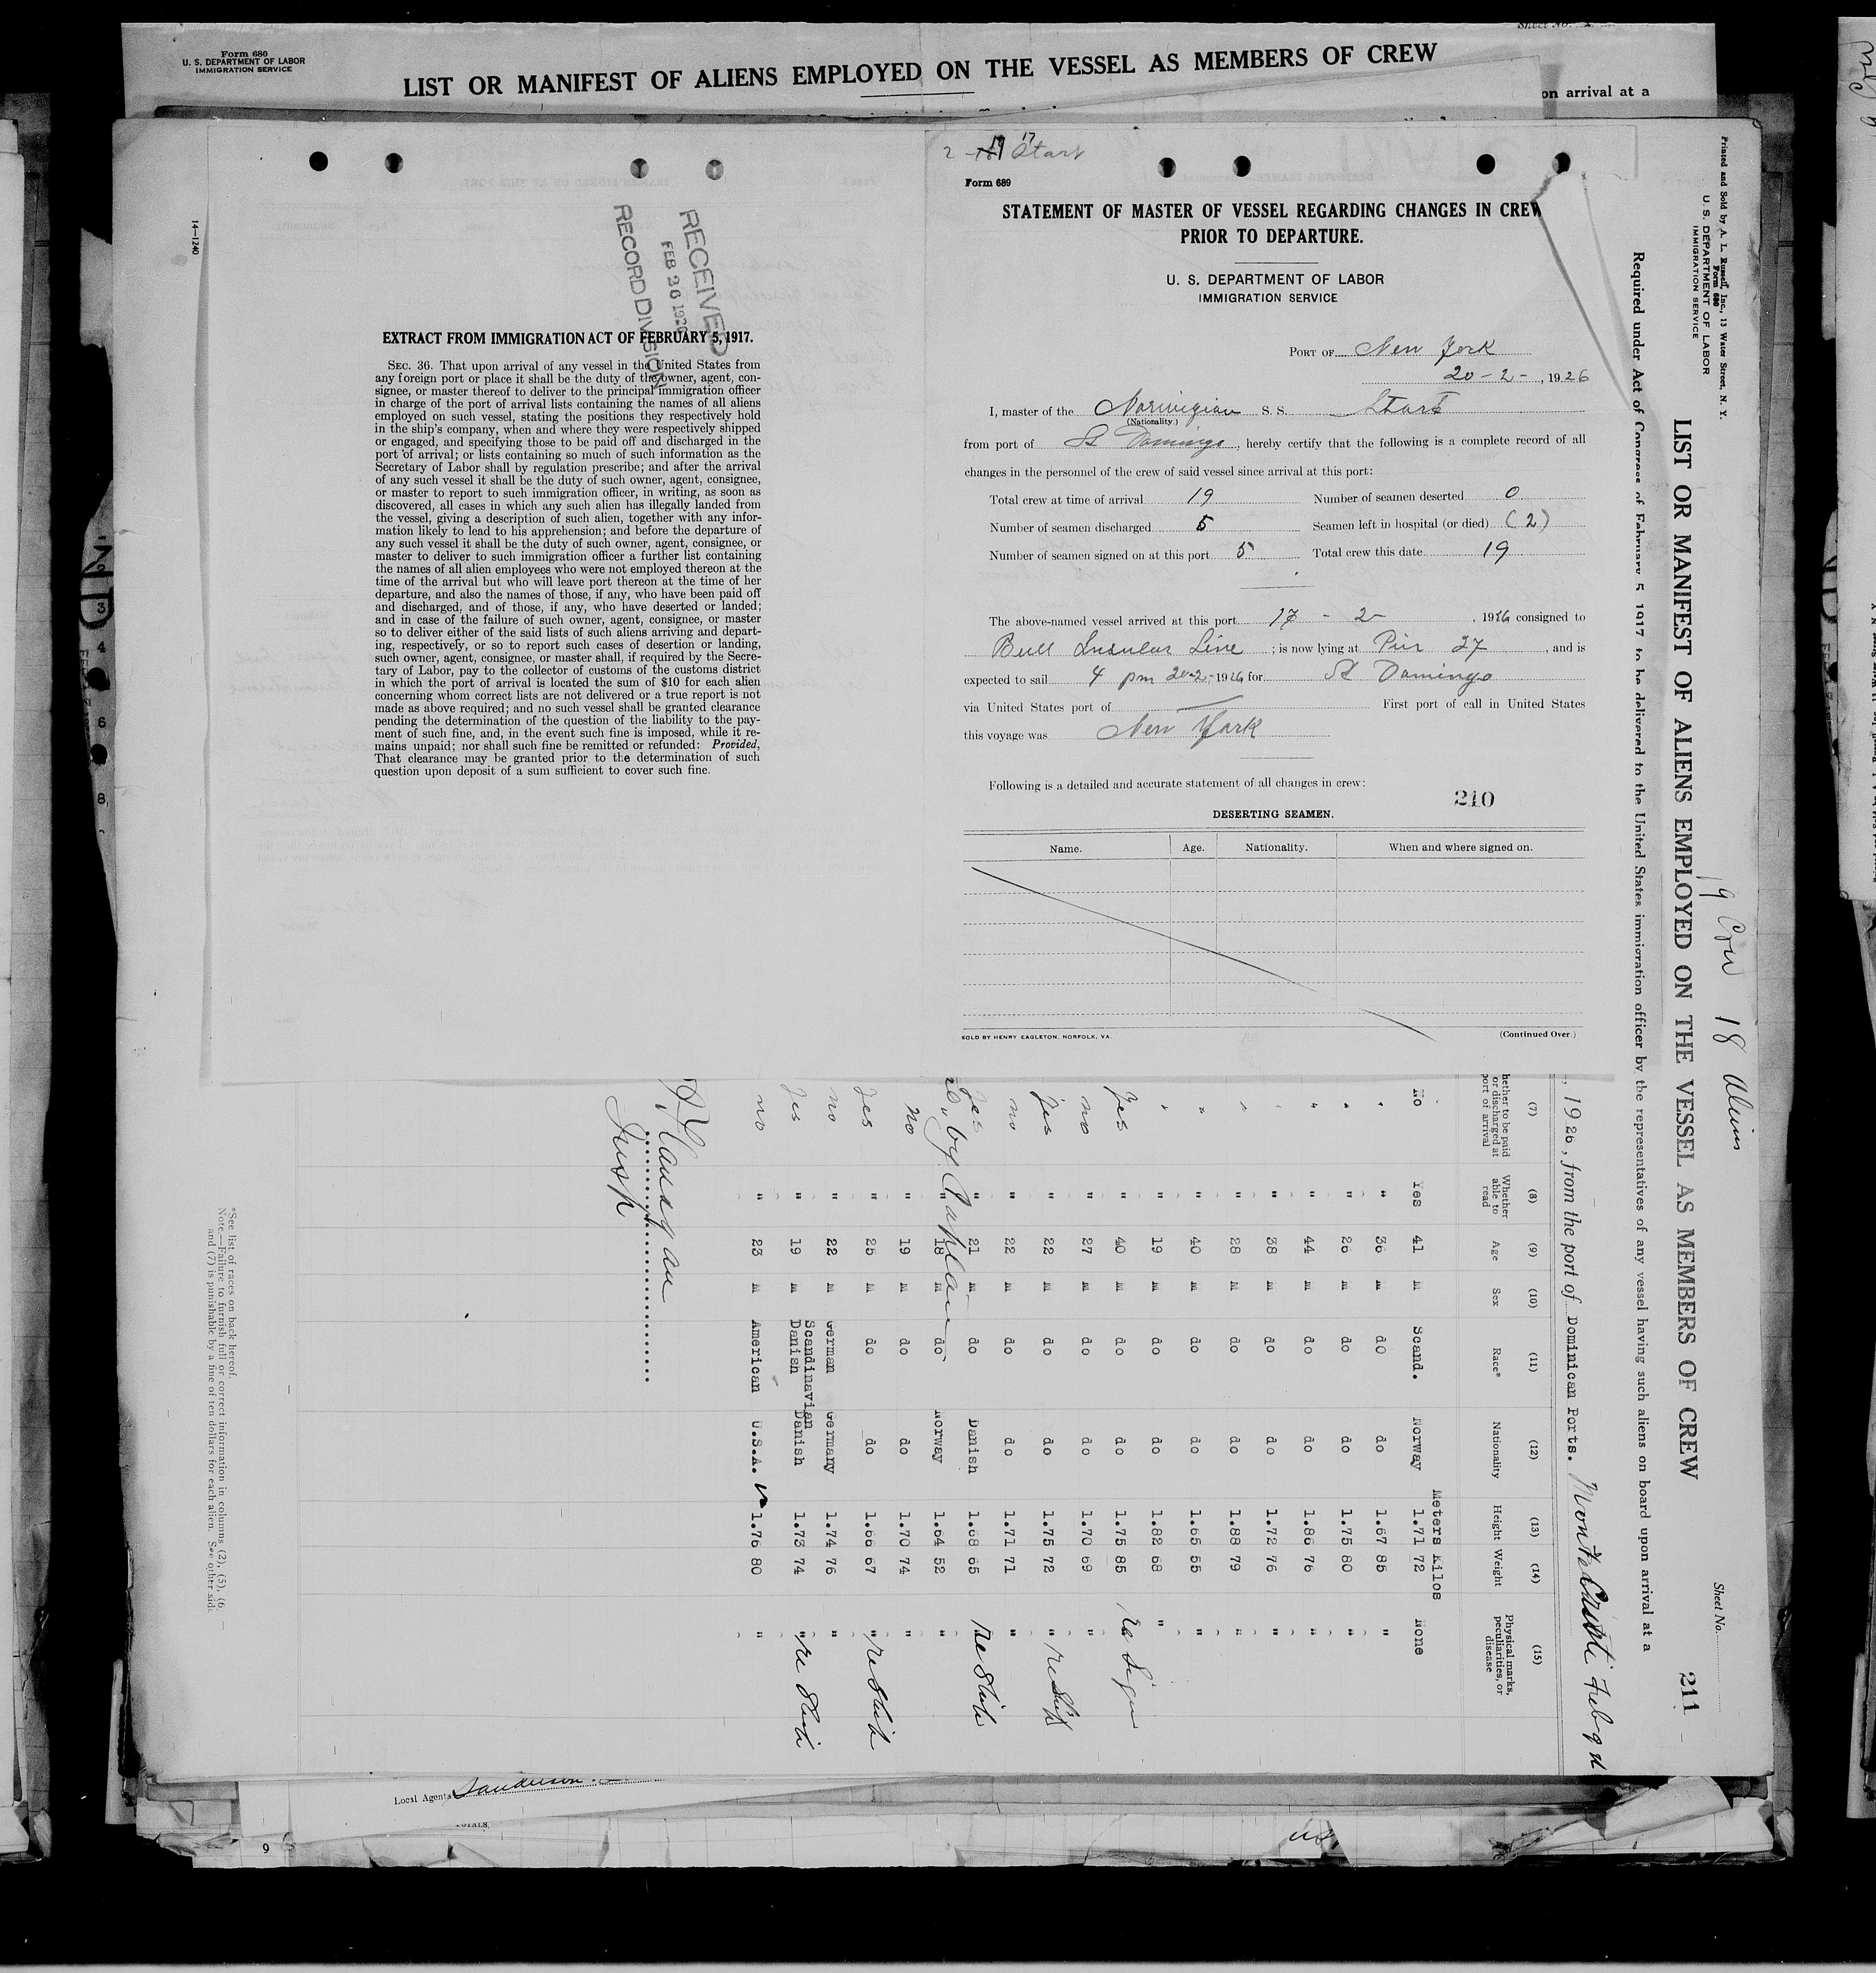 Form 680
U. S. DEPARTMENT OF LABOR
IMMIGRATION SERVICE
LIST OR MANIFEST OF ALIENS EMPLOYED ON THE VESSEL AS MEMBERS OF CREW
on arrival at a
14—1240
RECEIVED
FEB 26 1926
RECORD DIVISION
EXTRACT FROM IMMIGRATION ACT OF FEBRUARY 5, 1917.
SEC. 36. That upon arrival of any vessel in the United States from
any foreign port or place it shall be the duty of the owner, agent, con-
signee, or master thereof to deliver to the principal immigration officer
in charge of the port of arrival lists containing the names of all aliens
employed on such vessel, stating the positions they respectively hold
in the ship's company, when and where they were respectively shipped
or engaged, and specifying those to be paid off and discharged in the
port of arrival; or lists containing so much of such information as the
Secretary of Labor shall by regulation prescribe; and after the arrival
of any such vessel it shall be the duty of such owner, agent, consignee,
or master to report to such immigration officer, in writing, as soon as
discovered, all cases in which any such alien has illegally landed from
the vessel, giving a description of such alien, together with any infor-
mation likely to lead to his apprehension; and before the departure of
any such vessel it shall be the duty of such owner, agent, consignee, or
master to deliver to such immigration officer a further list containing
the names of all alien employees who were not employed thereon at the
time of the arrival but who will leave port thereon at the time of her
departure, and also the names of those, if any, who have been paid off
and discharged, and of those, if any, who have deserted or landed;
and in case of the failure of such owner, agent, consignee, or master
so to deliver either of the said lists of such aliens arriving and depart-
ing, respectively, or so to report such cases of desertion or landing,
such owner, agent, consignee, or master shall, if required by the Secre-
tary of Labor, pay to the collector of customs of the customs district
in which the port of arrival is located the sum of $10 for each alien
concerning whom correct lists are not delivered or a true report is not
made as above required; and no such vessel shall be granted clearance
pending the determination of the question of the liability to the pay-
ment of such fine, and, in the event such fine is imposed, while it re-
mains unpaid; nor shall such fine be remitted or refunded: Provided,
That clearance may be granted prior to the determination of such
question upon deposit of a sum sufficient to cover such fine.
17 Start
Form 689
STATEMENT OF MASTER OF VESSEL REGARDING CHANGES IN CREW
PRIOR TO DEPARTURE.
U. S. DEPARTMENT OF LABOR
IMMIGRATION SERVICE
PORT OF New York
20-2-, 1926
I, master of the Norwegian S. S. Start
(Nationality.)
from port of St Domingo, hereby certify that the following is a complete record of all
changes in the personnel of the crew of said vessel since arrival at this port:
Total crew at time of arrival 19 Number of seamen deserted 0
Number of seamen discharged 5 Seamen left in hospital (or died) (2)
Number of seamen signed on at this port 5 Total crew this date 19
The above-named vessel arrived at this port 17 - 2 - , 1926 consigned to
Bull Insular Line ; is now lying at Pier 27 , and is
expected to sail 4 pm 20-2- 1926 for St Domingo
via United States port of First port of call in United States
this voyage was New York
Following is a detailed and accurate statement of all changes in crew:
210
DESERTING SEAMEN.
Name. Age. Nationality. When and where signed on.
SOLD BY HENRY EAGLETON, NORFOLK, VA. (Continued Over.)
Printed and Sold by A. L. Russell, Inc., 13 Water Street, N. Y.
Form 680
U. S. DEPARTMENT OF LABOR
IMMIGRATION SERVICE
19 Crew 18 Aliens
Sheet No.
LIST OR MANIFEST OF ALIENS EMPLOYED ON THE VESSEL AS MEMBERS OF CREW 211
Required under Act of Congress of February 5, 1917 to be delivered to the United States immigration officer by the representatives of any vessel having such aliens on board upon arrival at a
, 1926, from the port of Dominican Ports. Monte Cristi Feb 9th
(7) (8) (9) (10) (11) (12) (13) (14) (15)
whether to be paid or discharged at port of arrival Whether able to read Age Sex Race* Nationality Height Weight Physical marks, peculiarities, or disease
Meters Kilos
No Yes 41 m Scand. Norway 1.71 72 None
" " 36 m do do 1.67 85 "
" " 26 m do do 1.75 80 "
" " 44 m do do 1.86 76 "
" " 38 m do do 1.72 76 "
" " 28 m do do 1.88 79 "
" " 40 m do do 1.65 55 "
" " 19 m do do 1.82 68 "
Yes " 40 m do do 1.75 85 re Sign
no " 27 m do do 1.70 69 "
Yes " 22 m do do 1.75 72 " reship
no " 22 m do do 1.71 71 "
Yes " 21 m do Danish 1.68 65 Reship
" 18 m do Norway 1.64 52 "
no " 19 m do do 1.70 74 "
Yes " 25 m do do 1.66 67 " reship
no " 22 m German Germany 1.74 76 "
Yes " 19 m Scandinavian Danish Danish 1.73 74 " re Ship
no " 23 m American U.S.A. 1.76 80 "
Insp
*See list of races on back hereof.
Note.—Failure to furnish full or correct information in columns (2), (5), (6,
and (7) is punishable by a fine of ten dollars for each alien. See other side.
Local Agents Sanderson
TOTALS,
9